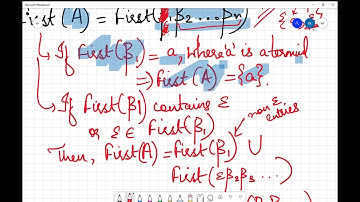 First(A) = First(β₁ β₂ ... βn)
If First(β₁) = a, where 'a' is a terminal
⇒ First(A) = {a}.
If First(β1) contains ε
or ε ∈ First(β₁)
non ε entries
Then, First(A) = First(β₁) ∪
First(εβ₂β₃ ...)